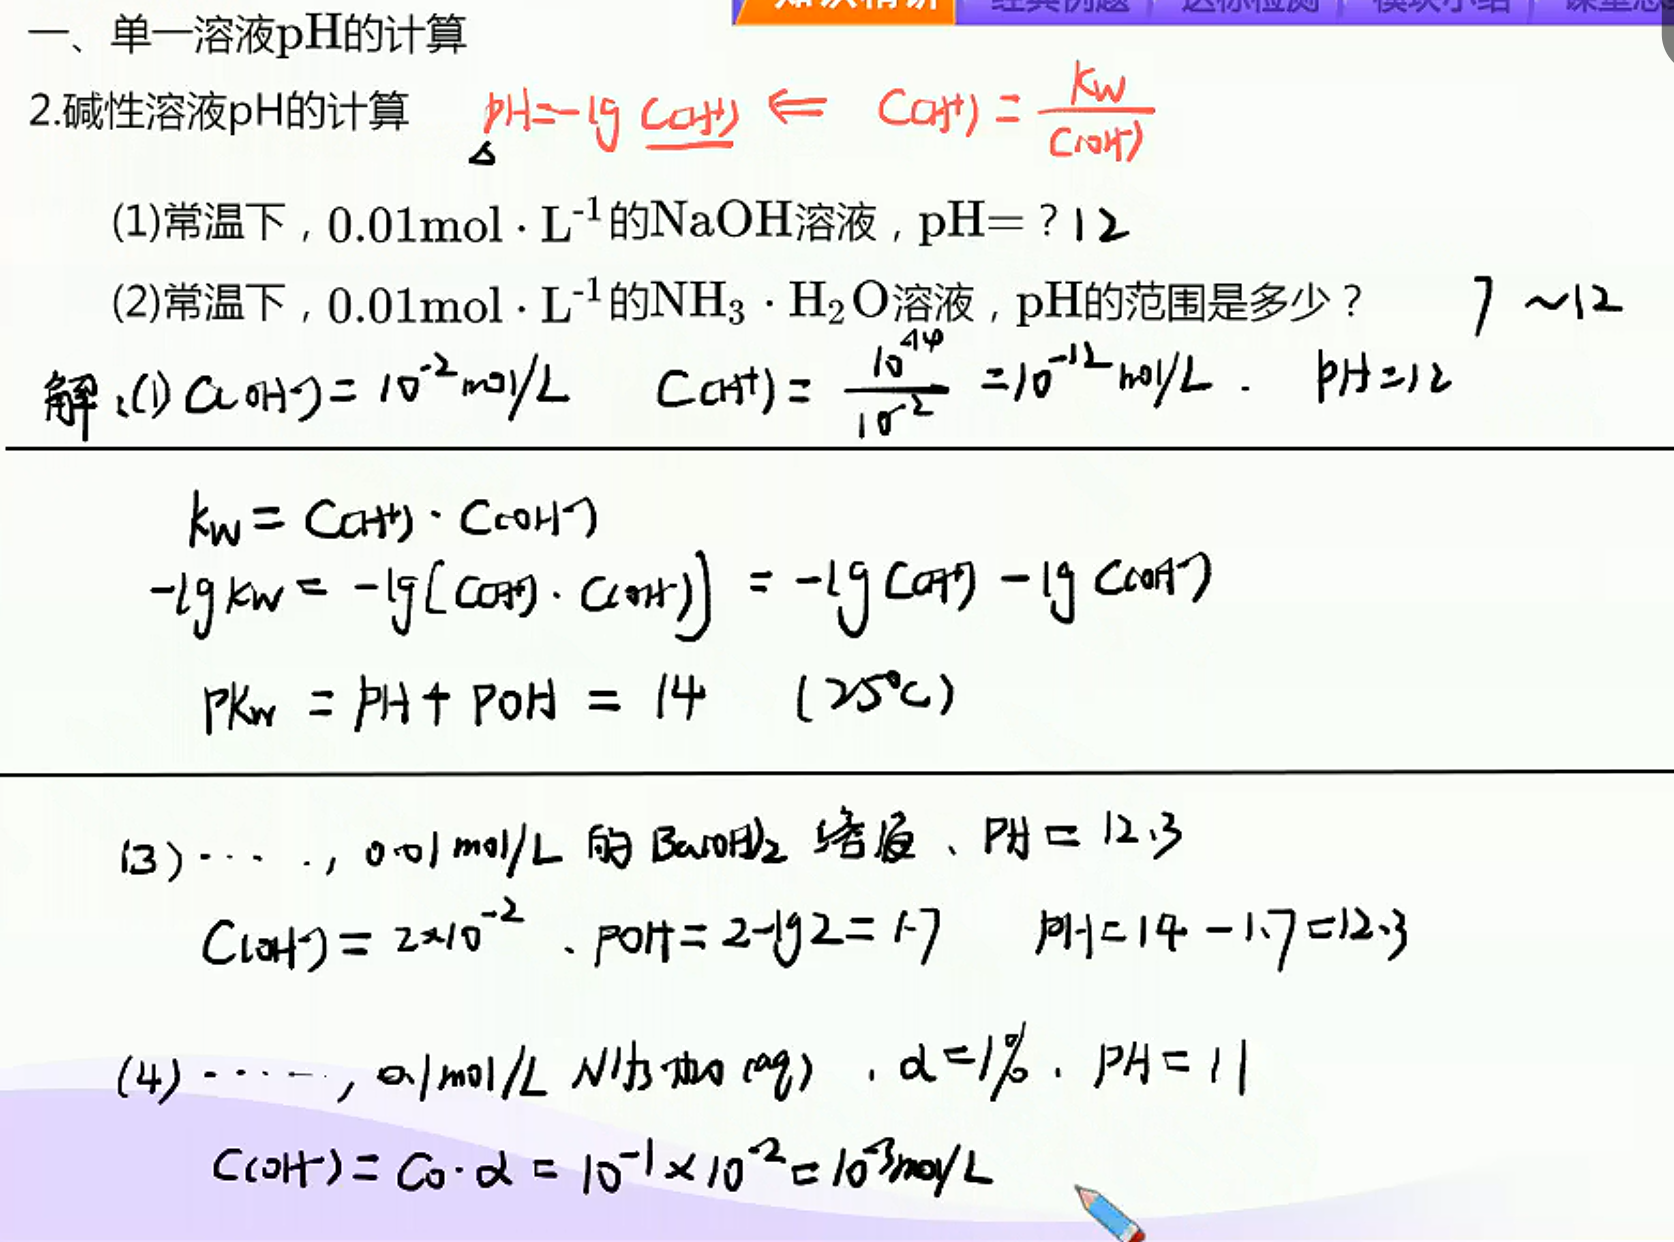 知识精讲 经典例题 达标检测 模块小结
一、单一溶液pH的计算
2.碱性溶液pH的计算 pH=-lg C(H⁺) ⇐ C(H⁺) = Kw/C(OH⁻)
(1)常温下，0.01mol·L⁻¹的NaOH溶液，pH=？12
(2)常温下，0.01mol·L⁻¹的NH₃·H₂O溶液，pH的范围是多少？ 7 ~12
解:(1) C(OH⁻) = 10⁻² mol/L C(H⁺) = 10⁻¹⁴/10⁻² = 10⁻¹² mol/L. pH=12
Kw = C(H⁺)·C(OH⁻)
-lg Kw = -lg[C(H⁺)·C(OH⁻)] = -lg C(H⁺) - lg C(OH⁻)
PKw = PH + POH = 14 (25℃)
(3) ·····, 0.01 mol/L 的 Ba(OH)₂ 溶液、PH = 12.3
C(OH⁻) = 2×10⁻² 、POH = 2-lg2 = 1.7 PH = 14 - 1.7 = 12.3
(4) ·····, 0.1mol/L NH₃·H₂O (aq) , α=1%. PH = 11
C(OH⁻) = C₀·α = 10⁻¹×10⁻² = 10⁻³mol/L